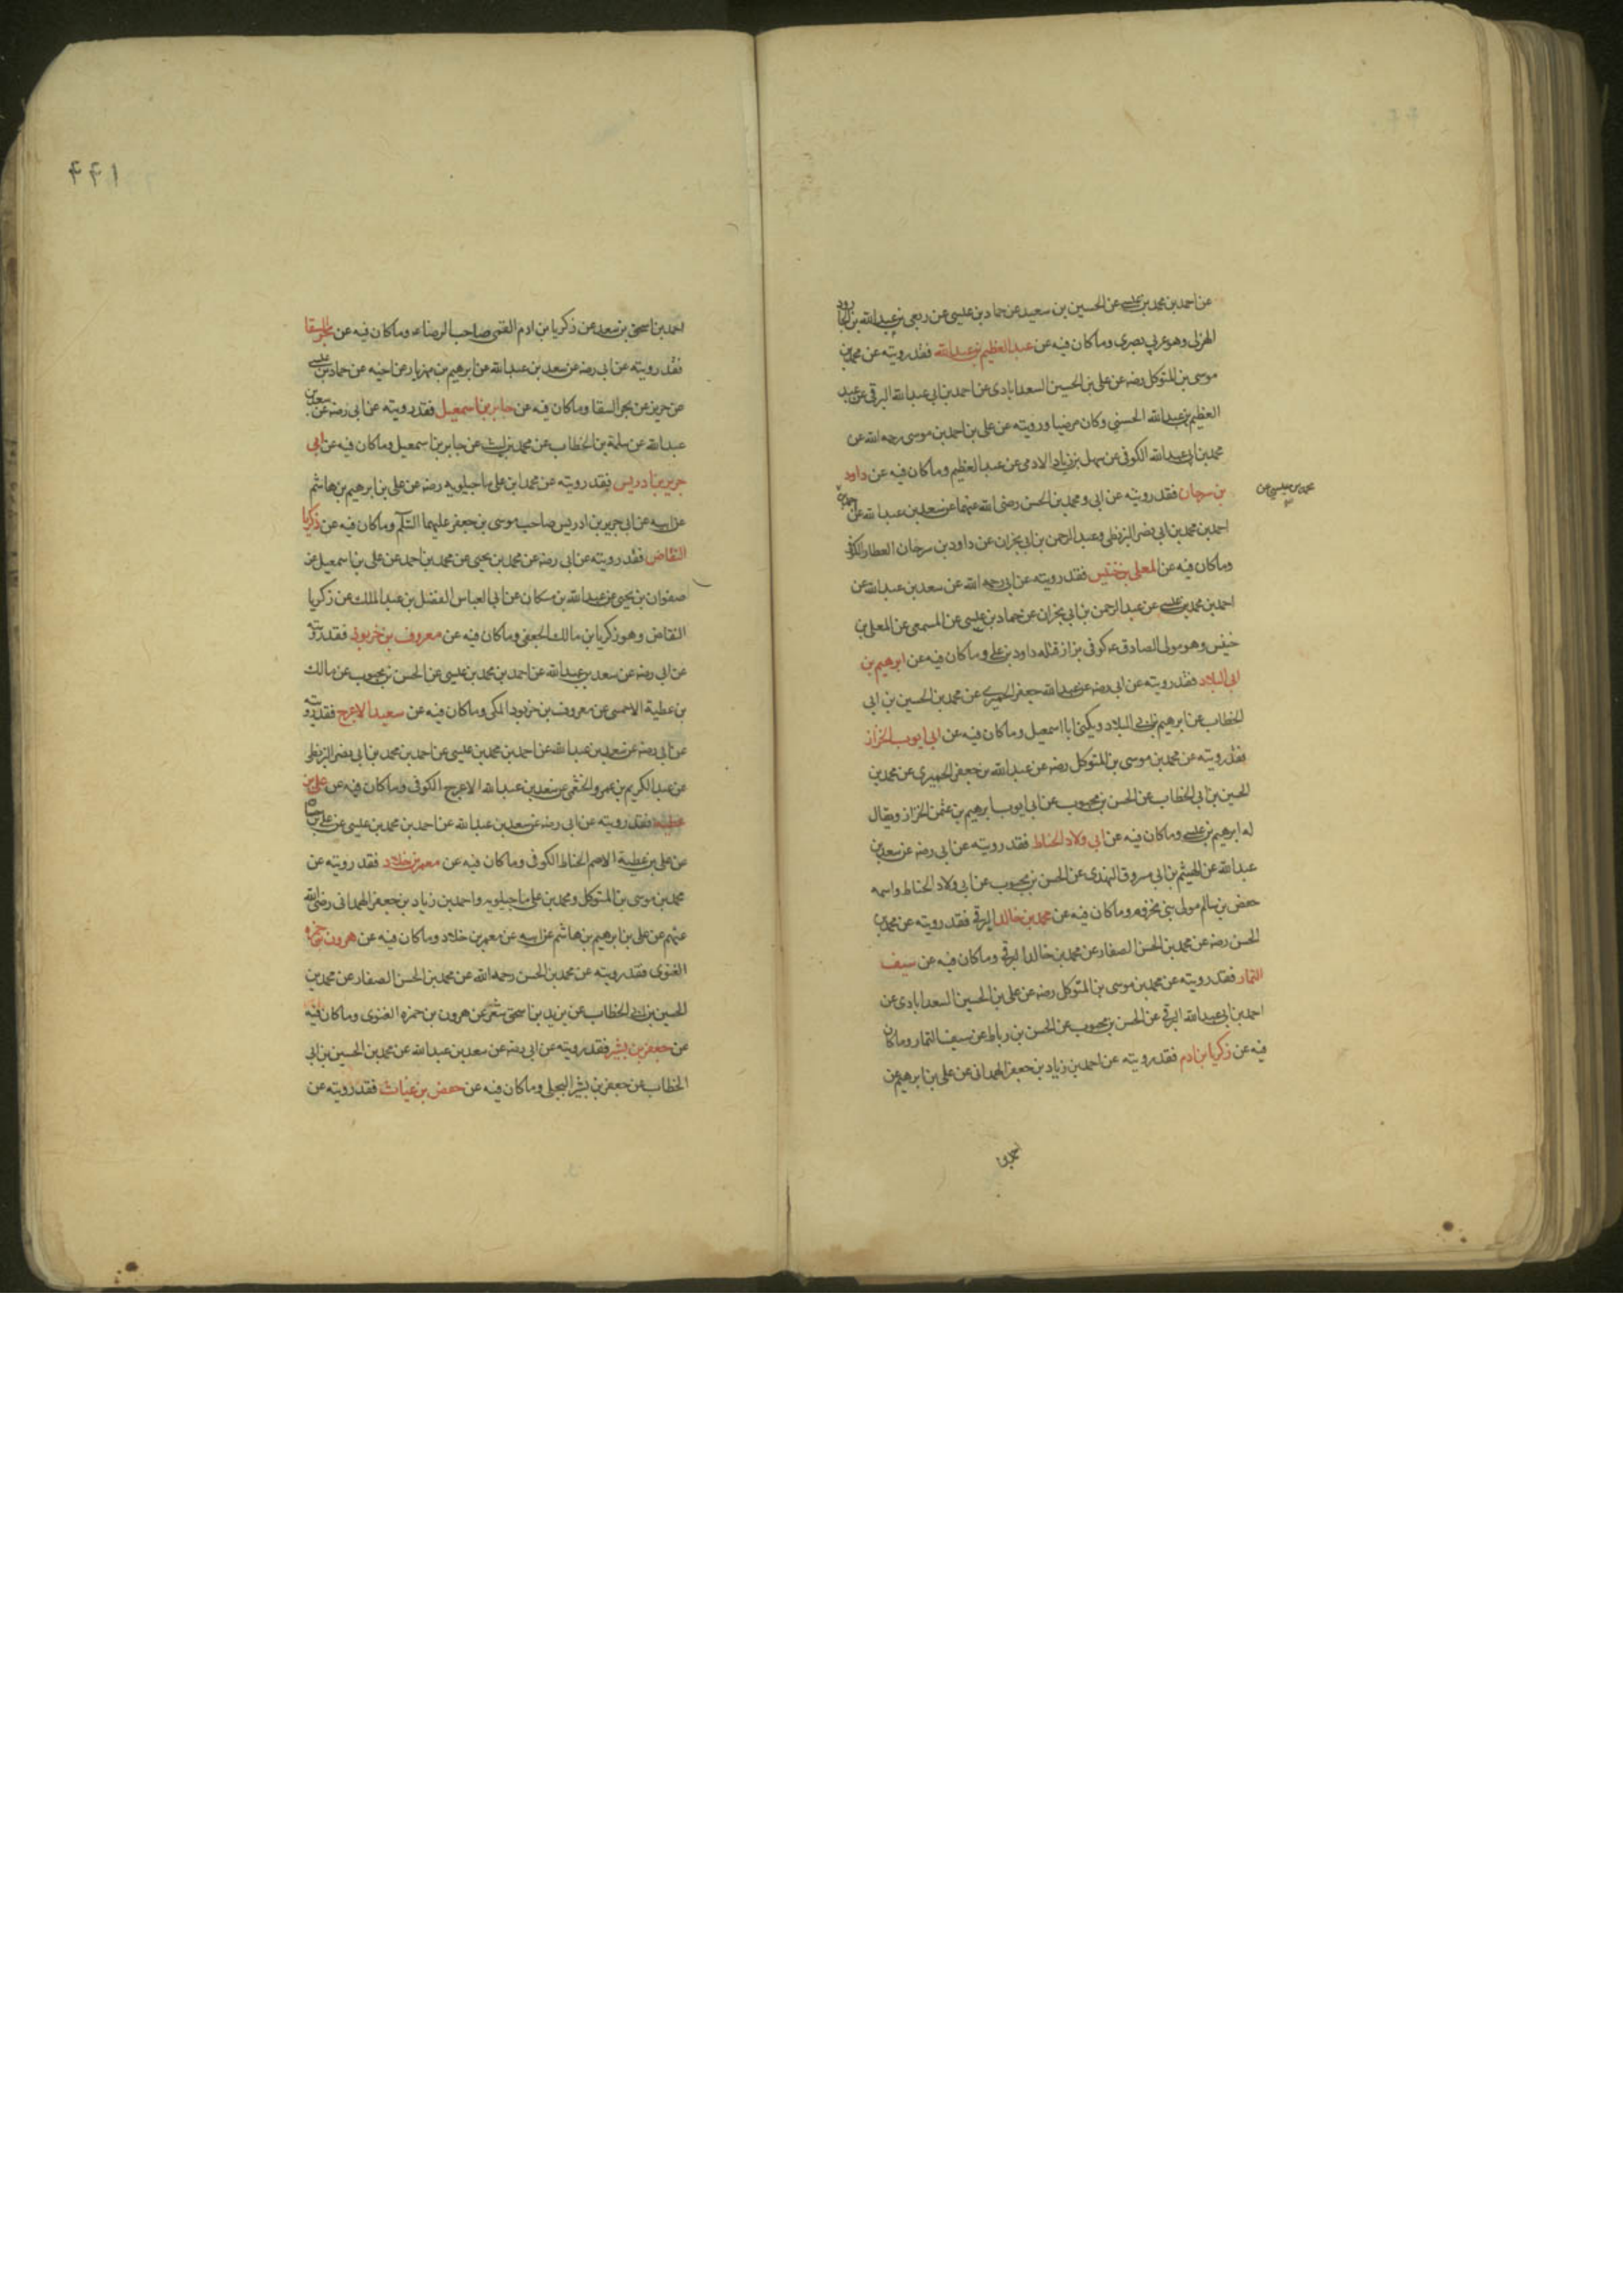 عن احمد بن محمد بن عيسى عن الحسين بن سعيد عن حماد بن عيسى عن ربعى بن عبد الله بن الجارود
الهزلى وهو عربي بصرى وما كان فيه عن عبد العظيم بن عبد الله فقد رويته عن محمد بن
موسى بن المتوكل رضه عن على بن الحسين السعدابادى عن احمد بن ابى عبد الله البرقى عن عبد
العظيم بن عبد الله الحسنى وكان مرضيا ورويته عن على بن احمد بن موسى رحمه الله عن
محمد بن ابى عبد الله الكوفى عن سهل بن زياد الادمى عن عبد العظيم وما كان فيه عن داود
بن سرحان فقد رويته عن ابى ومحمد بن الحسن رضى الله عنهما عن سعد بن عبد الله عن
محمد بن عيسى عن
احمد بن محمد بن ابى نصر البزنطى وعبد الرحمن بن ابى نجران عن داود بن سرحان العطار الكوفى
وما كان فيه عن المعلى بن خنيس فقد رويته عن ابى رحمه الله عن سعد بن عبد الله عن
احمد بن محمد بن عيسى عن عبد الرحمن بن ابى نجران عن حماد بن عيسى عن المسمعى عن المعلى بن
خنيس وهو مولى الصادق عه كوفى بزاز قتله داود بن على وما كان فيه عن ابرهيم بن
ابى البلاد فقد رويته عن ابى رضه عن عبد الله جعفر الحميرى عن محمد بن الحسين بن ابى
الخطاب عن ابرهيم بن ابى البلاد ويكنى ابا اسمعيل وما كان فيه عن ابى ايوب الخزاز
فقد رويته عن محمد بن موسى بن المتوكل رضه عن عبد الله بن جعفر الحميرى عن محمد بن
الحسين بن ابى الخطاب عن الحسن بن محبوب عن ابى ايوب ابرهيم بن عثمن الخزاز ويقال
له ابرهيم بن عيسى وما كان فيه عن ابى ولاد الحناط فقد رويته عن ابى رضه عن سعد بن
عبد الله عن الهيثم بن ابى مسروق النهدى عن الحسن بن محبوب عن ابى ولاد الحناط واسمه
حفص بن سالم مولى بنى مخزوم وما كان فيه عن محمد بن خالد البرقى فقد رويته عن محمد بن
الحسن رضه عن محمد بن الحسن الصفار عن محمد بن خالد البرقى وما كان فيه عن سيف
التمار فقد رويته عن محمد بن موسى بن المتوكل رضه عن على بن الحسين السعدابادى عن
احمد بن ابى عبد الله البرقى عن الحسن بن محبوب عن الحسن بن رباط عن سيف التمار وما كان
فيه عن زكريا بن ادم فقد رويته عن احمد بن زياد بن جعفر الهمدانى عن على بن ابرهيم عن
احمد بن
۴۴۱
احمد بن اسحق بن سعد عن زكريا بن ادم القمى صاحب الرضا عه وما كان فيه عن بحر السقا
فقد رويته عن ابى رضه عن سعد بن عبد الله عن ابرهيم بن مهزيار عن اخيه عن حماد بن عيسى
عن حريز عن بحر السقا وما كان فيه عن جابر بن اسمعيل فقد رويته عن ابى رضه عن سعد بن
عبد الله عن سلمة بن الخطاب عن محمد بن ليث عن جابر بن اسمعيل وما كان فيه عن ابى
جرير بن ادريس فقد رويته عن محمد ابن على ماجيلويه رضه عن على بن ابرهيم بن هاشم
عن ابيه عن ابى جرير بن ادريس صاحب موسى بن جعفر عليهما السلم وما كان فيه عن زكريا
النقاض فقد رويته عن ابى رضه عن محمد بن يحيى عن محمد بن احمد عن على بن اسمعيل عن
صفوان بن يحيى عن عبد الله بن مسكان عن ابى العباس الفضل بن عبد الملك عن زكريا
النقاض وهو زكريا بن مالك الجعفى وما كان فيه عن معروف بن خربوذ فقد رويته
عن ابى رضه عن سعد بن عبد الله عن احمد بن محمد بن عيسى عن الحسن بن محبوب عن مالك
بن عطية الاحمسى عن معروف بن خربوذ المكى وما كان فيه عن سعيد الاعرج فقد رويته
عن ابى رضه عن سعد بن عبد الله عن احمد بن محمد بن عيسى عن احمد بن محمد بن ابى نصر البزنطى
عن عبد الكريم بن عمرو الخثعمى عن سعد بن عبد الله الاعرج الكوفى وما كان فيه عن على بن
عطيه فقد رويته عن ابى رضه عن سعد بن عبد الله عن احمد بن محمد بن عيسى عن على بن حسان
عن على بن عطية الاصم الحناط الكوفى وما كان فيه عن معمر بن خلاد فقد رويته عن
محمد بن موسى بن المتوكل ومحمد بن على ماجيلويه واحمد بن زياد بن جعفر الهمدانى رضى الله
عنهم عن على بن ابرهيم بن هاشم عن ابيه عن معمر بن خلاد وما كان فيه عن هرون بن حمزه
الغنوى فقد رويته عن محمد بن الحسن رحمه الله عن محمد بن الحسن الصفار عن محمد بن
الحسين بن ابى الخطاب عن يزيد بن اسحق شعر عن هرون بن حمزه الغنوى وما كان فيه
عن جعفر بن بشير فقد رويته عن ابى رضه عن سعد بن عبد الله عن محمد بن الحسين بن ابى
الخطاب عن جعفر بن بشير البجلى وما كان فيه عن حفص بن غياث فقد رويته عن